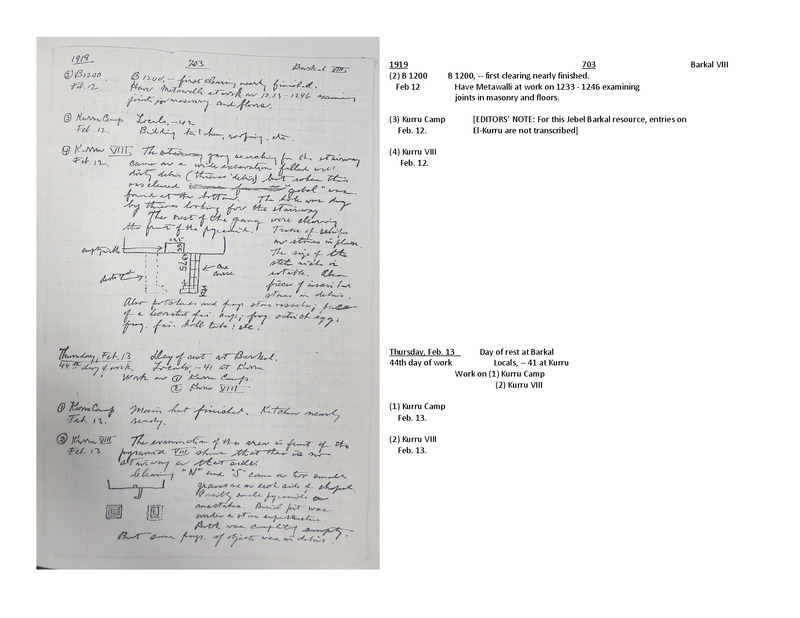 1919 703 Barkal VIII.
(2) B1200 B 1200, – first clearing nearly finished.
Feb. 12 Have Metawalli at work on 1233 - 1246 examining
joints for masonry and floors.
(3) Kurru Camp Locals, –42
Feb. 12. Building kitchen, roofing, etc.
(4) Kurru VIII. The stairway gang searching for the stairway
Feb. 12. came on a wide excavation filled with
dirty debris (thieves' debris) but when this
was cleared "gebel" was
found at the bottom. The hole was dug
by thieves looking for the stairway
The rest of the gang were clearing
the front of the pyramid. Traces of
in stones in place
The size of the
is
notable. Also
pieces of inscribed
stones in debris.
one
course
Also potsherds and frags. stone vessels;
of a fai. cup; frag. ostrich egg;
frag. fai. ball ; etc.
Thursday, Feb. 13 Day of rest at Barkal.
44th day of work, Locals, –41 at Kurru
Work on (1) Kurru Camp.
(2) Kurru VIII
(1) Kurru Camp. Main hut finished. Kitchen nearly
Feb. 13. ready.
(2) Kurru VIII The examination of the area in front of the
Feb. 13. pyramid VIII shows that there is no
stairway on that side.
Clearing "N" and "S" came on two small
graves on each side of chapel.
Possibly small pyramids or
mastabas. Burial pit was
under a stone superstructure
Both were completely empty.
But some frags. of objects were in debris.
1919 703 Barkal VIII
(2) B 1200 B 1200, -- first clearing nearly finished.
Feb 12 Have Metawalli at work on 1233 - 1246 examining
joints in masonry and floors.
(3) Kurru Camp [EDITORS' NOTE: For this Jebel Barkal resource, entries on
Feb. 12. El-Kurru are not transcribed]
(4) Kurru VIII
Feb. 12.
Thursday, Feb. 13 Day of rest at Barkal
44th day of work Locals, – 41 at Kurru
Work on (1) Kurru Camp
(2) Kurru VIII
(1) Kurru Camp
Feb. 13.
(2) Kurru VIII
Feb. 13.